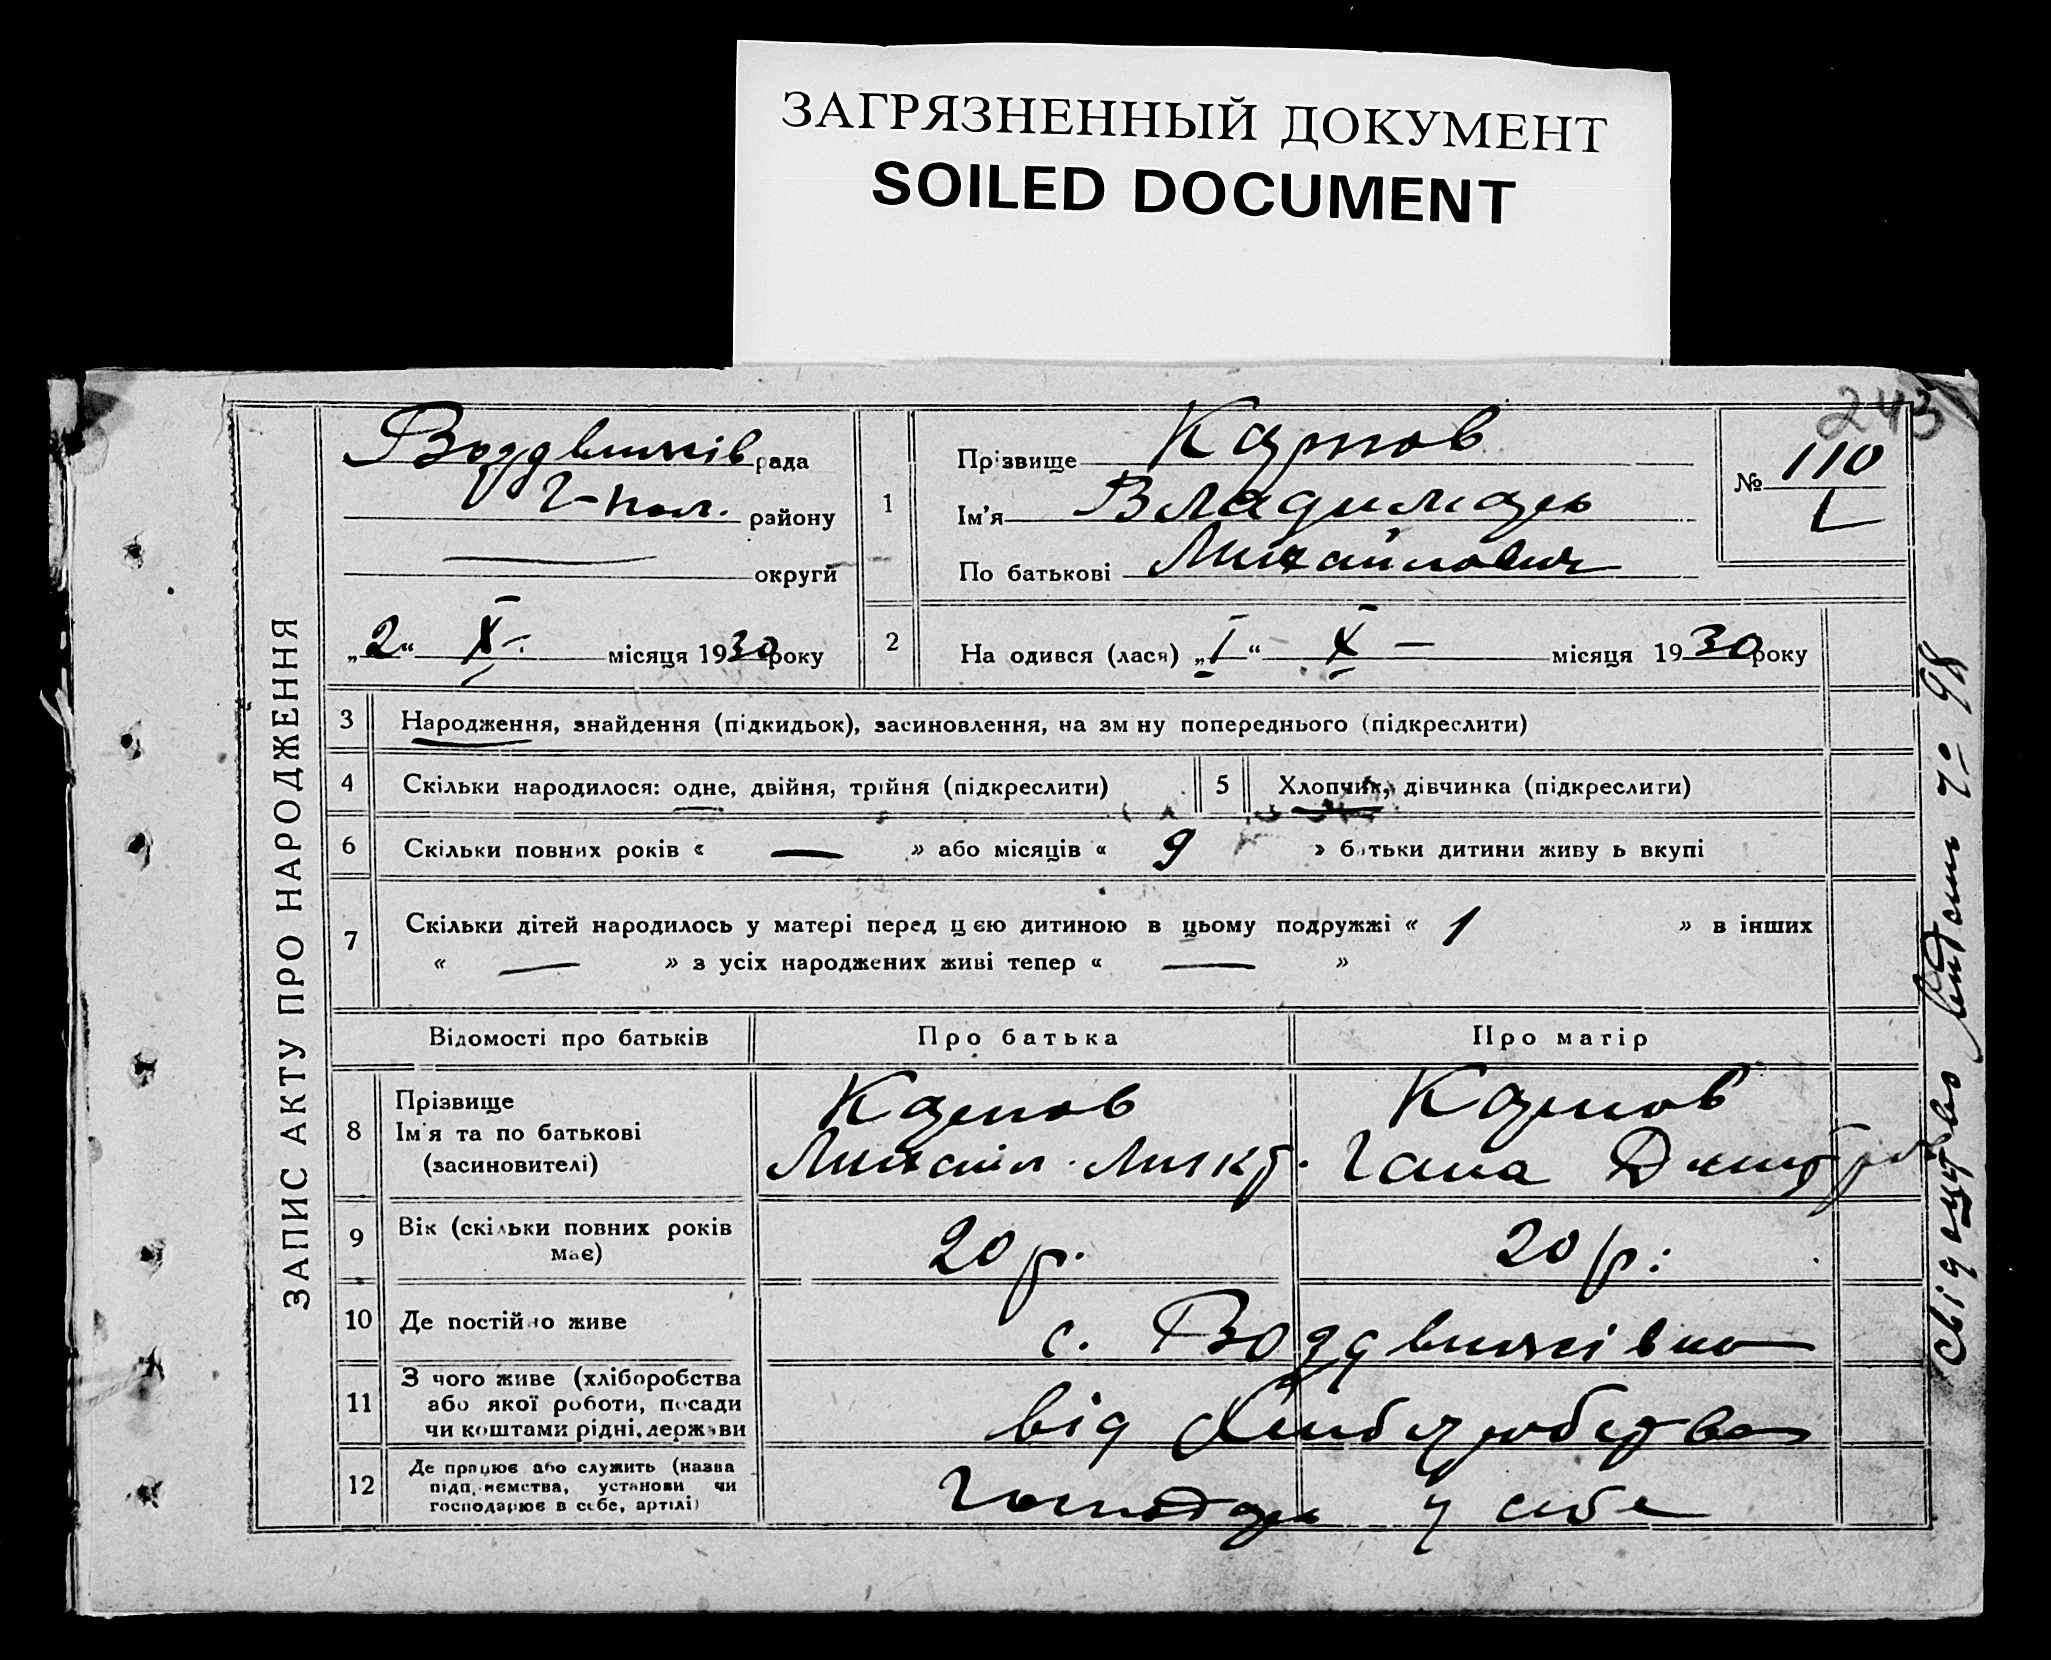 ЗАГРЯЗНЕННЫЙ ДОКУМЕНТ
SOILED DOCUMENT
243
ЗАПИС АКТУ ПРО НАРОДЖЕННЯ
Воздвижів рада
Г-пол. району
округи
„2“ X місяця 1930 року
1 Прізвище Карпов
Ім'я Владимарь
По батькові Михайлович
№ 110
2 На одився (лася) „I“ X — місяця 1930 року
3 Народження, знайдення (підкидьок), засиновлення, на зм ну попереднього (підкреслити)
4 Скільки народилося: одне, двійня, трійня (підкреслити) 5 Хлопчик, дівчинка (підкреслити)
6 Скільки повних років « — » або місяців « 9 » батьки дитини живу ь вкупі
7 Скільки дітей народилось у матері перед цєю дитиною в цьому подружжі « 1 » в інших
« — » з усіх народжених живі тепер « — »
Відомості про батьків Про батька Про матір
8 Прізвище Карпов Карпов
Ім'я та по батькові Михайл Мик Гана Дмитр
(засиновителі)
9 Вік (скільки повних років 20 р. 20 р.
має)
10 Де постійно живе с. Воздвижівка
11 З чого живе (хліборобства
або якої роботи, посади від Хліборобства
чи коштами рідні, держави
12 Де працює або служить (назва
підп иємства, установи чи Господар у себе
господарює в себе, артілі)
Свідоцтво видано